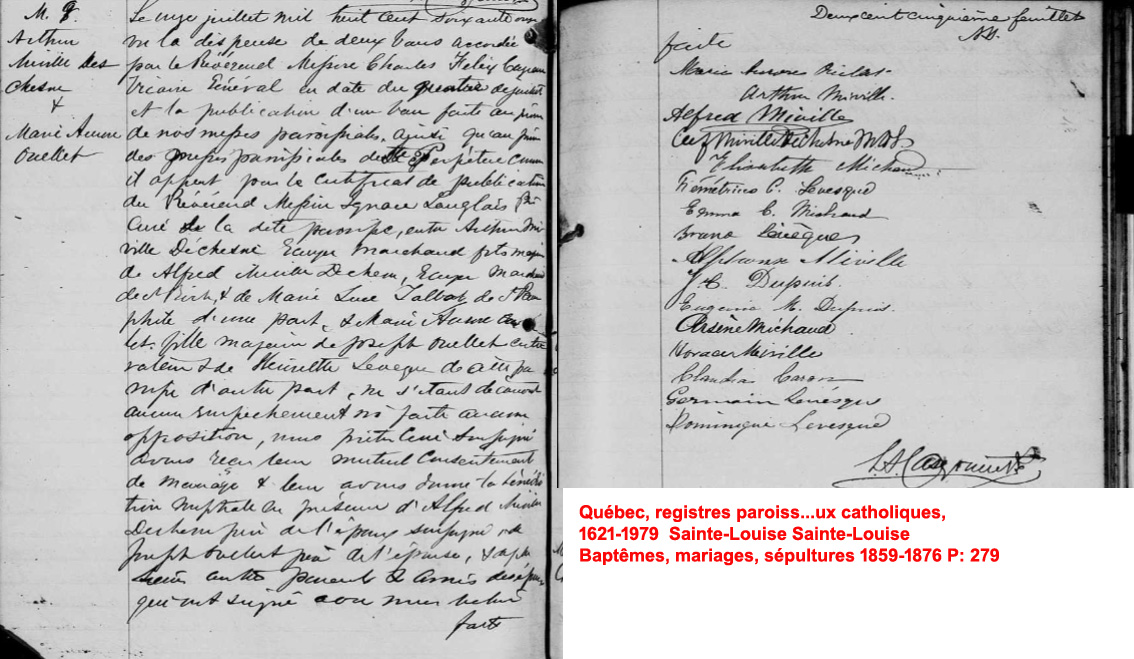 M. 8.
Arthur
Miville Des
chesne
&
Marie Aurore
Ouellet
Le onze juillet mil huit cent soixante onze
vu la dispense de deux bans accordée
par le Révérend Messire Charles Félix Cazeau
Vicaire Général en date du quatre de juillet
et la publication d'un ban faite au prône
de nos messes paroissiales, ainsi qu'au prône
des messes paroissiales de Ste Perpétue comme
il appert par le certificat de publication
du Révérend Messire Ignace Langlais Ptre
Curé de la dite paroisse, entre Arthur Mi
ville Déchesne Ecuyer Marchand fils majeur
de Alfred Miville Dechene, Ecuyer Marchand
de St Roch, & de Marie Luce Talbot de
d'une part, & Marie Aurore Ouel
let, fille majeure de Joseph Ouellet cultivateur
& de Henriette Leveque de cette pa
roisse d'autre part, ne s'étant découvert
aucun empêchement ni faite aucune
opposition, nous prêtre Curé soussigné
avons reçu leur mutuel consentement
de mariage & leur avons donné la bénédic
tion nuptiale en présence d'Alfred Miville
Dechene père de l'époux soussigné & de
Joseph Ouellet père de l'épouse, & aussi
autres parents & amis des époux
qui ont signé avec nous lecture
faite
Deux cent cinquième feuillet
faite
Marie Aurore
Arthur Miville.
Alfred Miville
Miville Dechesne
Elisabeth Michaud
Démétrius C. Levesque
Emma C. Michaud
Bruno Levèque
Alphonse Miville
J. C. Dupuis.
Eugénie M. Dupuis.
Arsène Michaud
Horace Miville
Claudia Caron
Germain Levésque
Dominique Levesque
Québec, registres paroiss...ux catholiques,
1621-1979 Sainte-Louise Sainte-Louise
Baptêmes, mariages, sépultures 1859-1876 P: 279